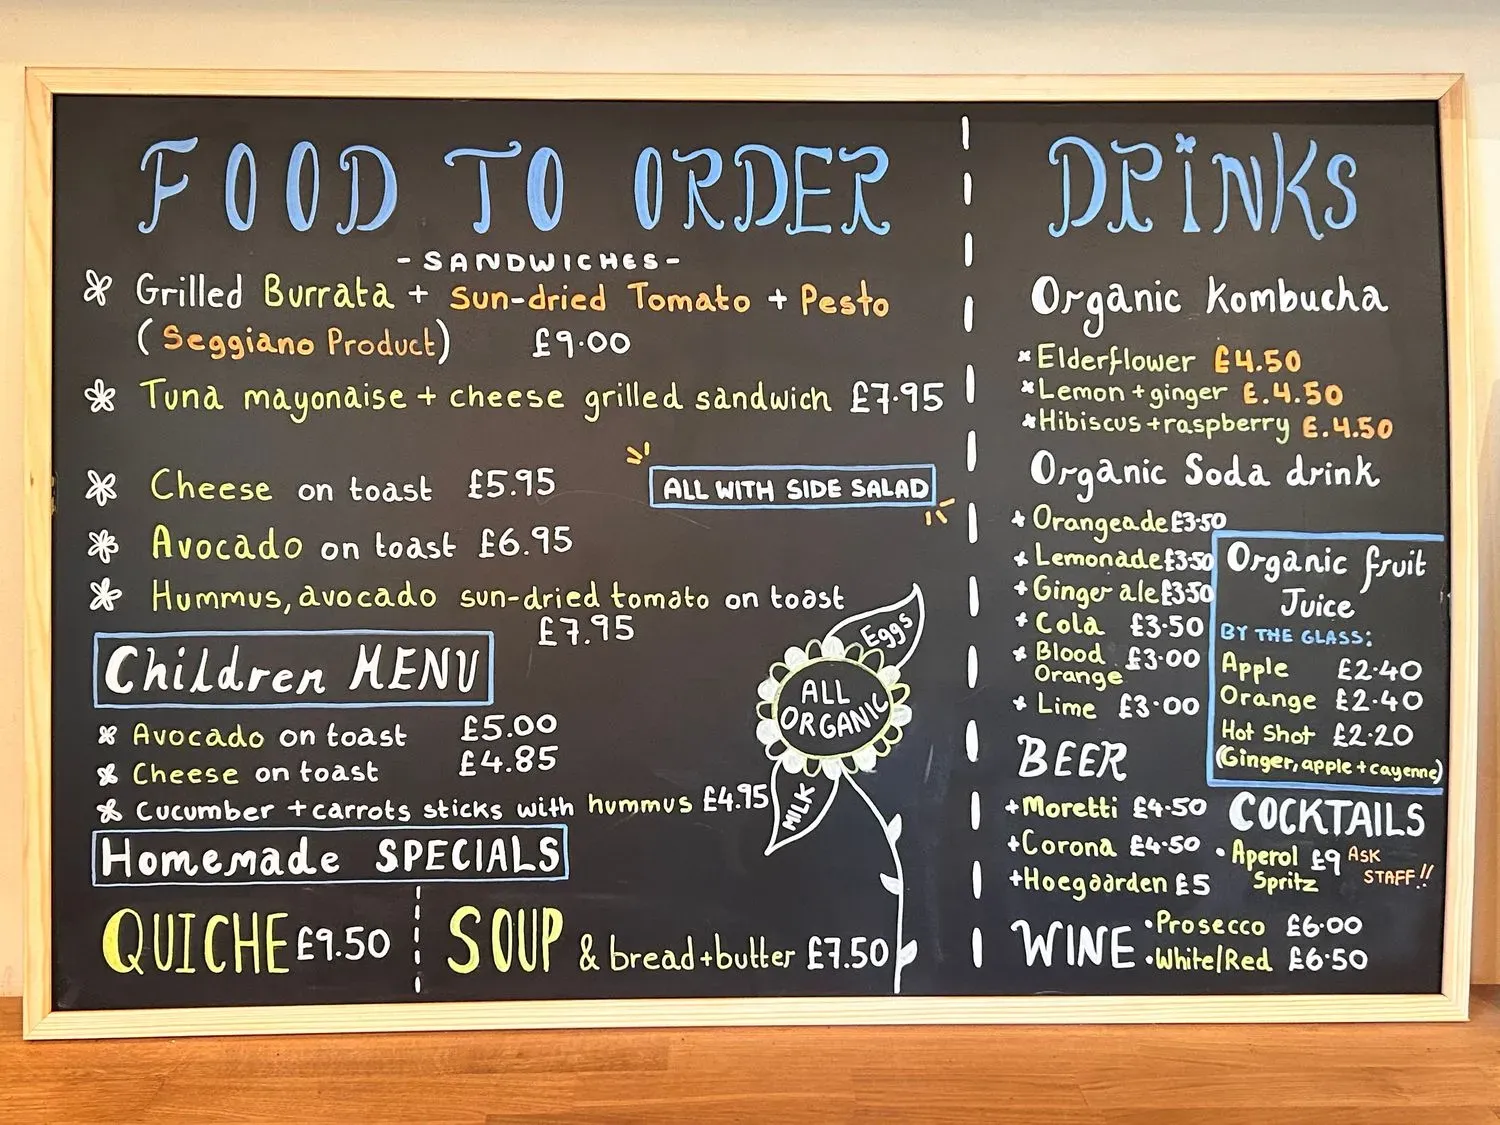 FOOD TO ORDER
- SANDWICHES -
Grilled Burrata + Sun-dried Tomato + Pesto
(Seggiano Product) £9.00
Tuna mayonaise + cheese grilled sandwich £7.95
Cheese on toast £5.95
ALL WITH SIDE SALAD
Avocado on toast £6.95
Hummus, avocado sun-dried tomato on toast
£7.95
Children MENU
Avocado on toast £5.00
Cheese on toast £4.85
Cucumber + carrots sticks with hummus £4.95
Eggs
ALL
ORGANIC
MILK
Homemade SPECIALS
QUICHE £9.50
SOUP & bread + butter £7.50
DRINKS
Organic Kombucha
Elderflower £4.50
Lemon + ginger £.4.50
Hibiscus + raspberry £.4.50
Organic Soda drink
Orangeade £3.50
Lemonade £3.50
Ginger ale £3.50
Cola £3.50
Blood £3.00
Orange
Lime £3.00
Organic fruit
Juice
BY THE GLASS:
Apple £2.40
Orange £2.40
Hot Shot £2.20
(Ginger, apple + cayenne)
BEER
+Moretti £4.50
+Corona £4.50
+Hoegaarden £5
COCKTAILS
• Aperol £9 ASK
Spritz STAFF!!
WINE
•Prosecco £6.00
•White/Red £6.50